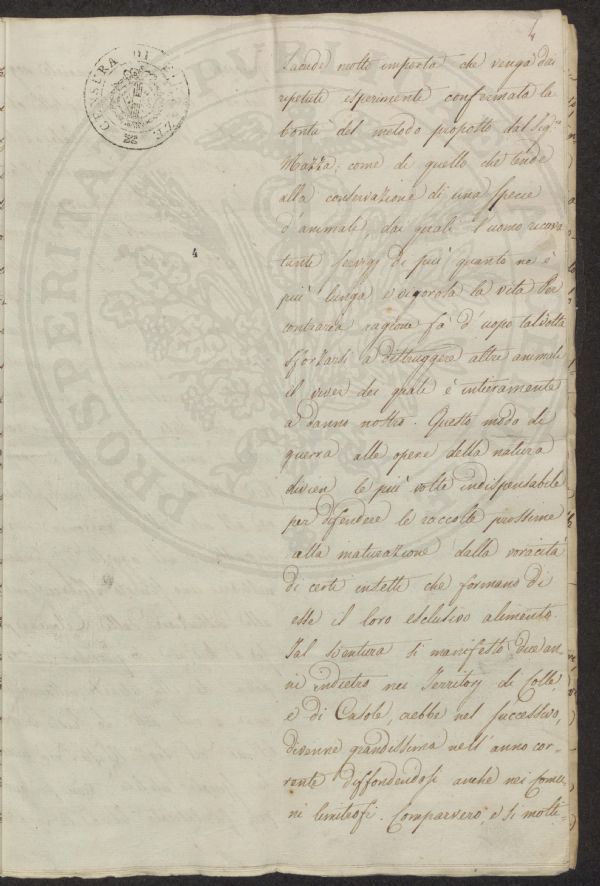 4
CENSURA DI
4
molto importa che venga dai
ripetute esperimente confermata la
bontà del metodo proposto dal Sig.r
Mazza; come di quello che tende
alla conservazione di una specie
d'animale, dai quali l'uomo ricava
tante servigj di più quanto ne è
più lunga e vigorosa la vita. Per
contraria ragione fà d'uopo talvolta
sforzarsi a distruggere altre animali
il viver dei quali è intieramente
a danno nostro. Questo modo di
guerra alle opere della natura
divien le più volte indispensabile
per difendere le raccolte prossime
alla maturazione dalla voracità
di certi insetti che formano di
esse il loro esclusivo alimento.
Tal sventura si manifestò due an-
ni indietro nei Territorj di Colle,
e di Casole, crebbe nel successivo,
divenne grandissima nell'anno cor-
rente diffondendosi anche nei Comu-
ni limitrofi. Comparvero, e si molti-
PROSPERITA